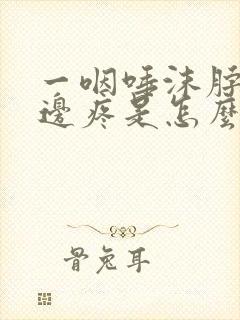 一咽唾沫脖
邊疼是怎麼
骨兔耳